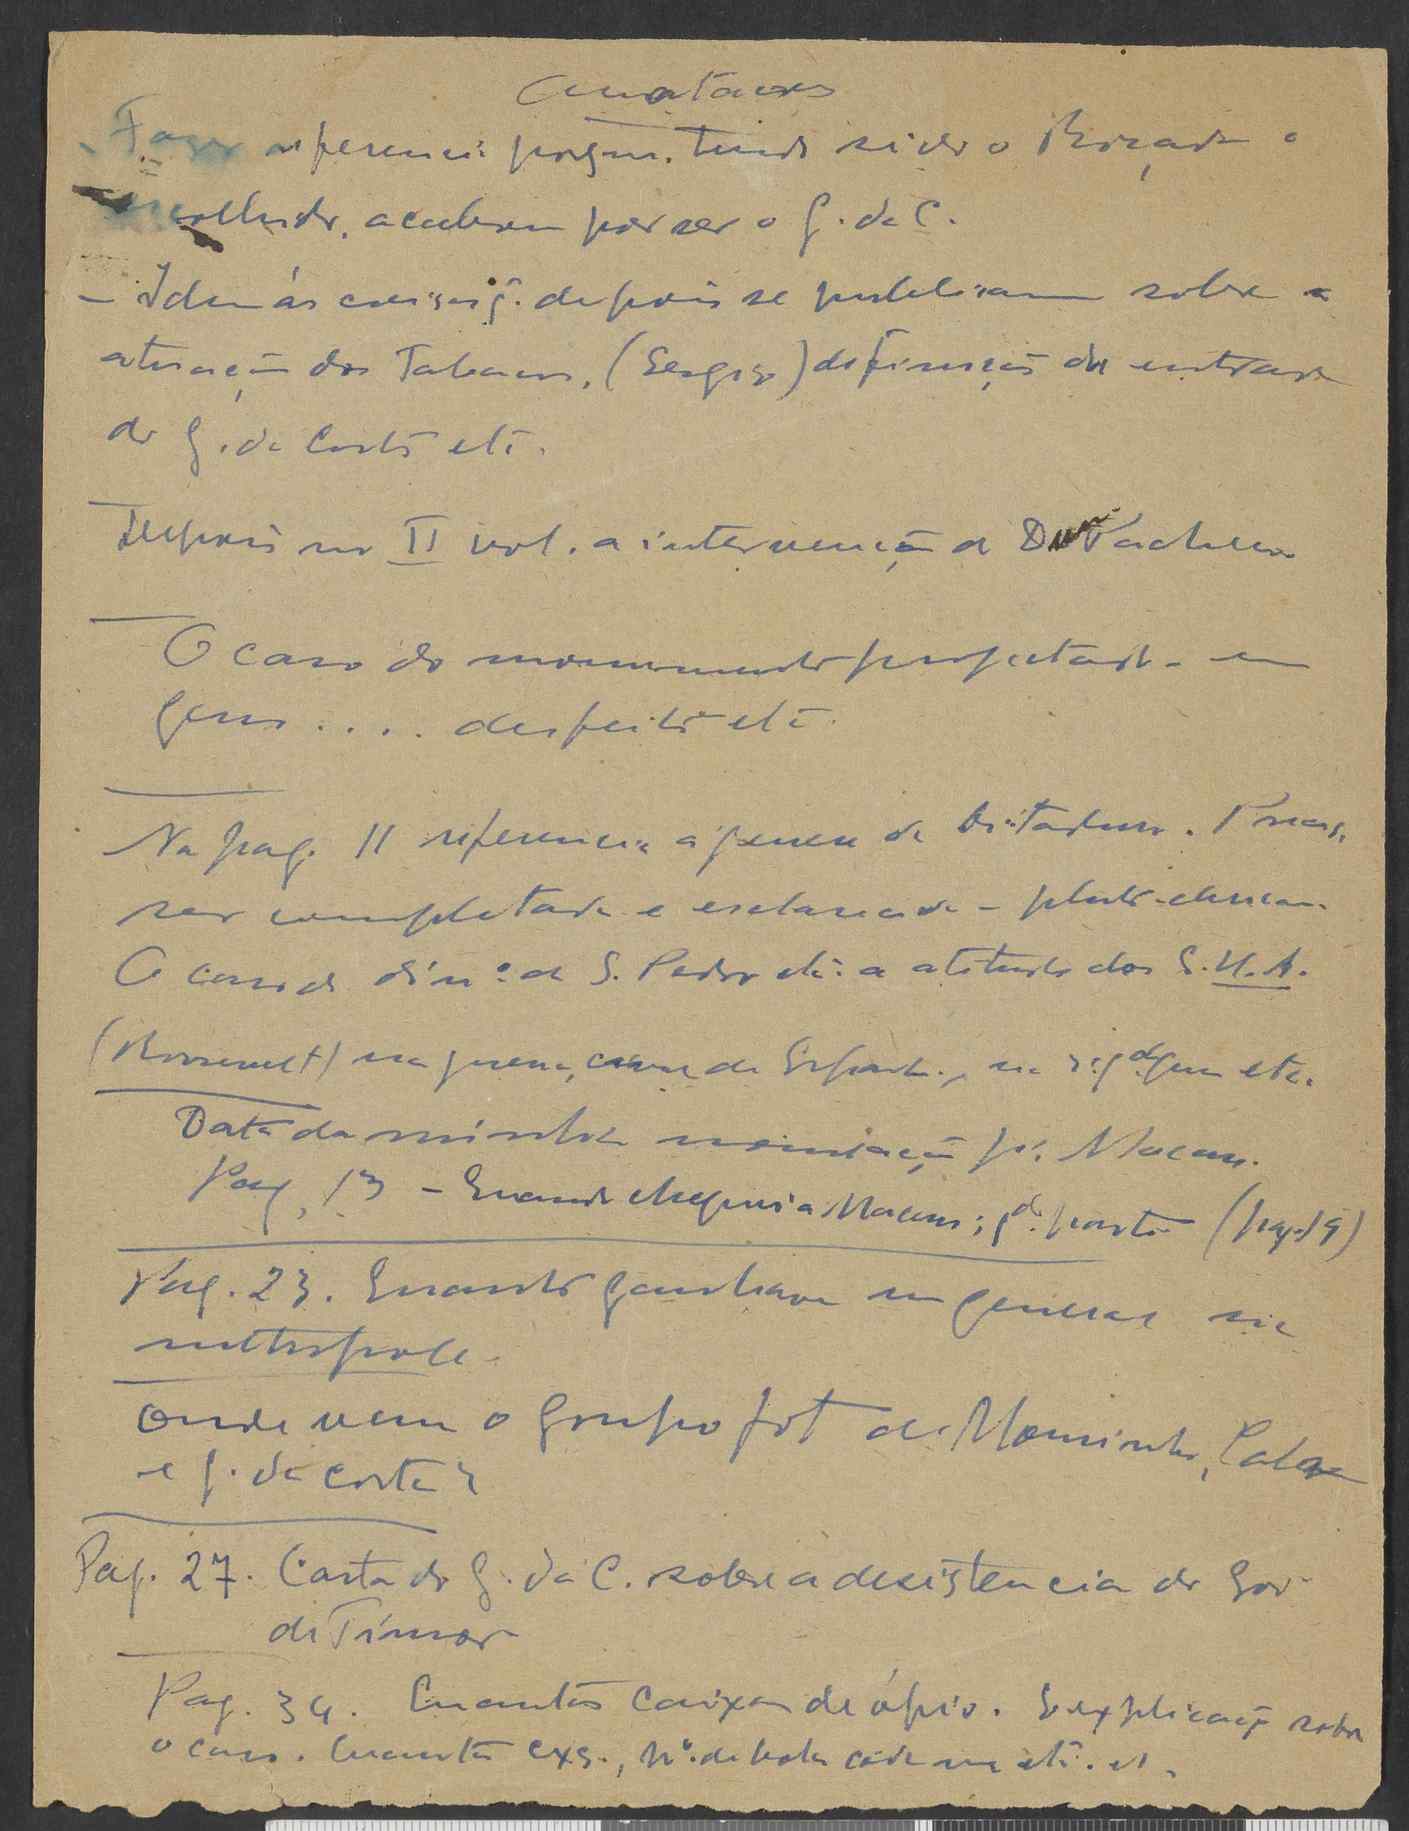 Anotações
Fazer referencia porque, tendo sido o Roçadas o
escolhido, acabou por ser o G. da C.
– Idem ás coisas q. depois se publicaram sobre a
atuação dos Tabacos, (Sergio) definição da entrada
do G. da Costa etc.
Depois no II vol. a intervenção de
O caso do monumento projetado em
.... desfeito etc.
Na pag. 11 referencia á genese da Ditadura. Precisa
ser completada e esclarecida –
O caso do din.º de S. Pedro etc. a atitude dos E.U.A.
(Roosevelt) na guerra, de Espanha, na etc.
Data da minha nomeação pª. Macau.
Pag. 13 – Quando cheguei a Macau; qdo. parti (pag. 19)
Pag. 23. Quanto ganhava um general na
metropole.
Onde vem o grupo fot de Mousinho,
e G. da Costa?
Pag. 27. Carta do G. da C. sobre a desistencia do Gov.
de Timor
Pag. 34. Quantas caixas de ópio. E explicação sobre
o caso. Quantas cxs., Nº. de bolas cada uma etc. etc.